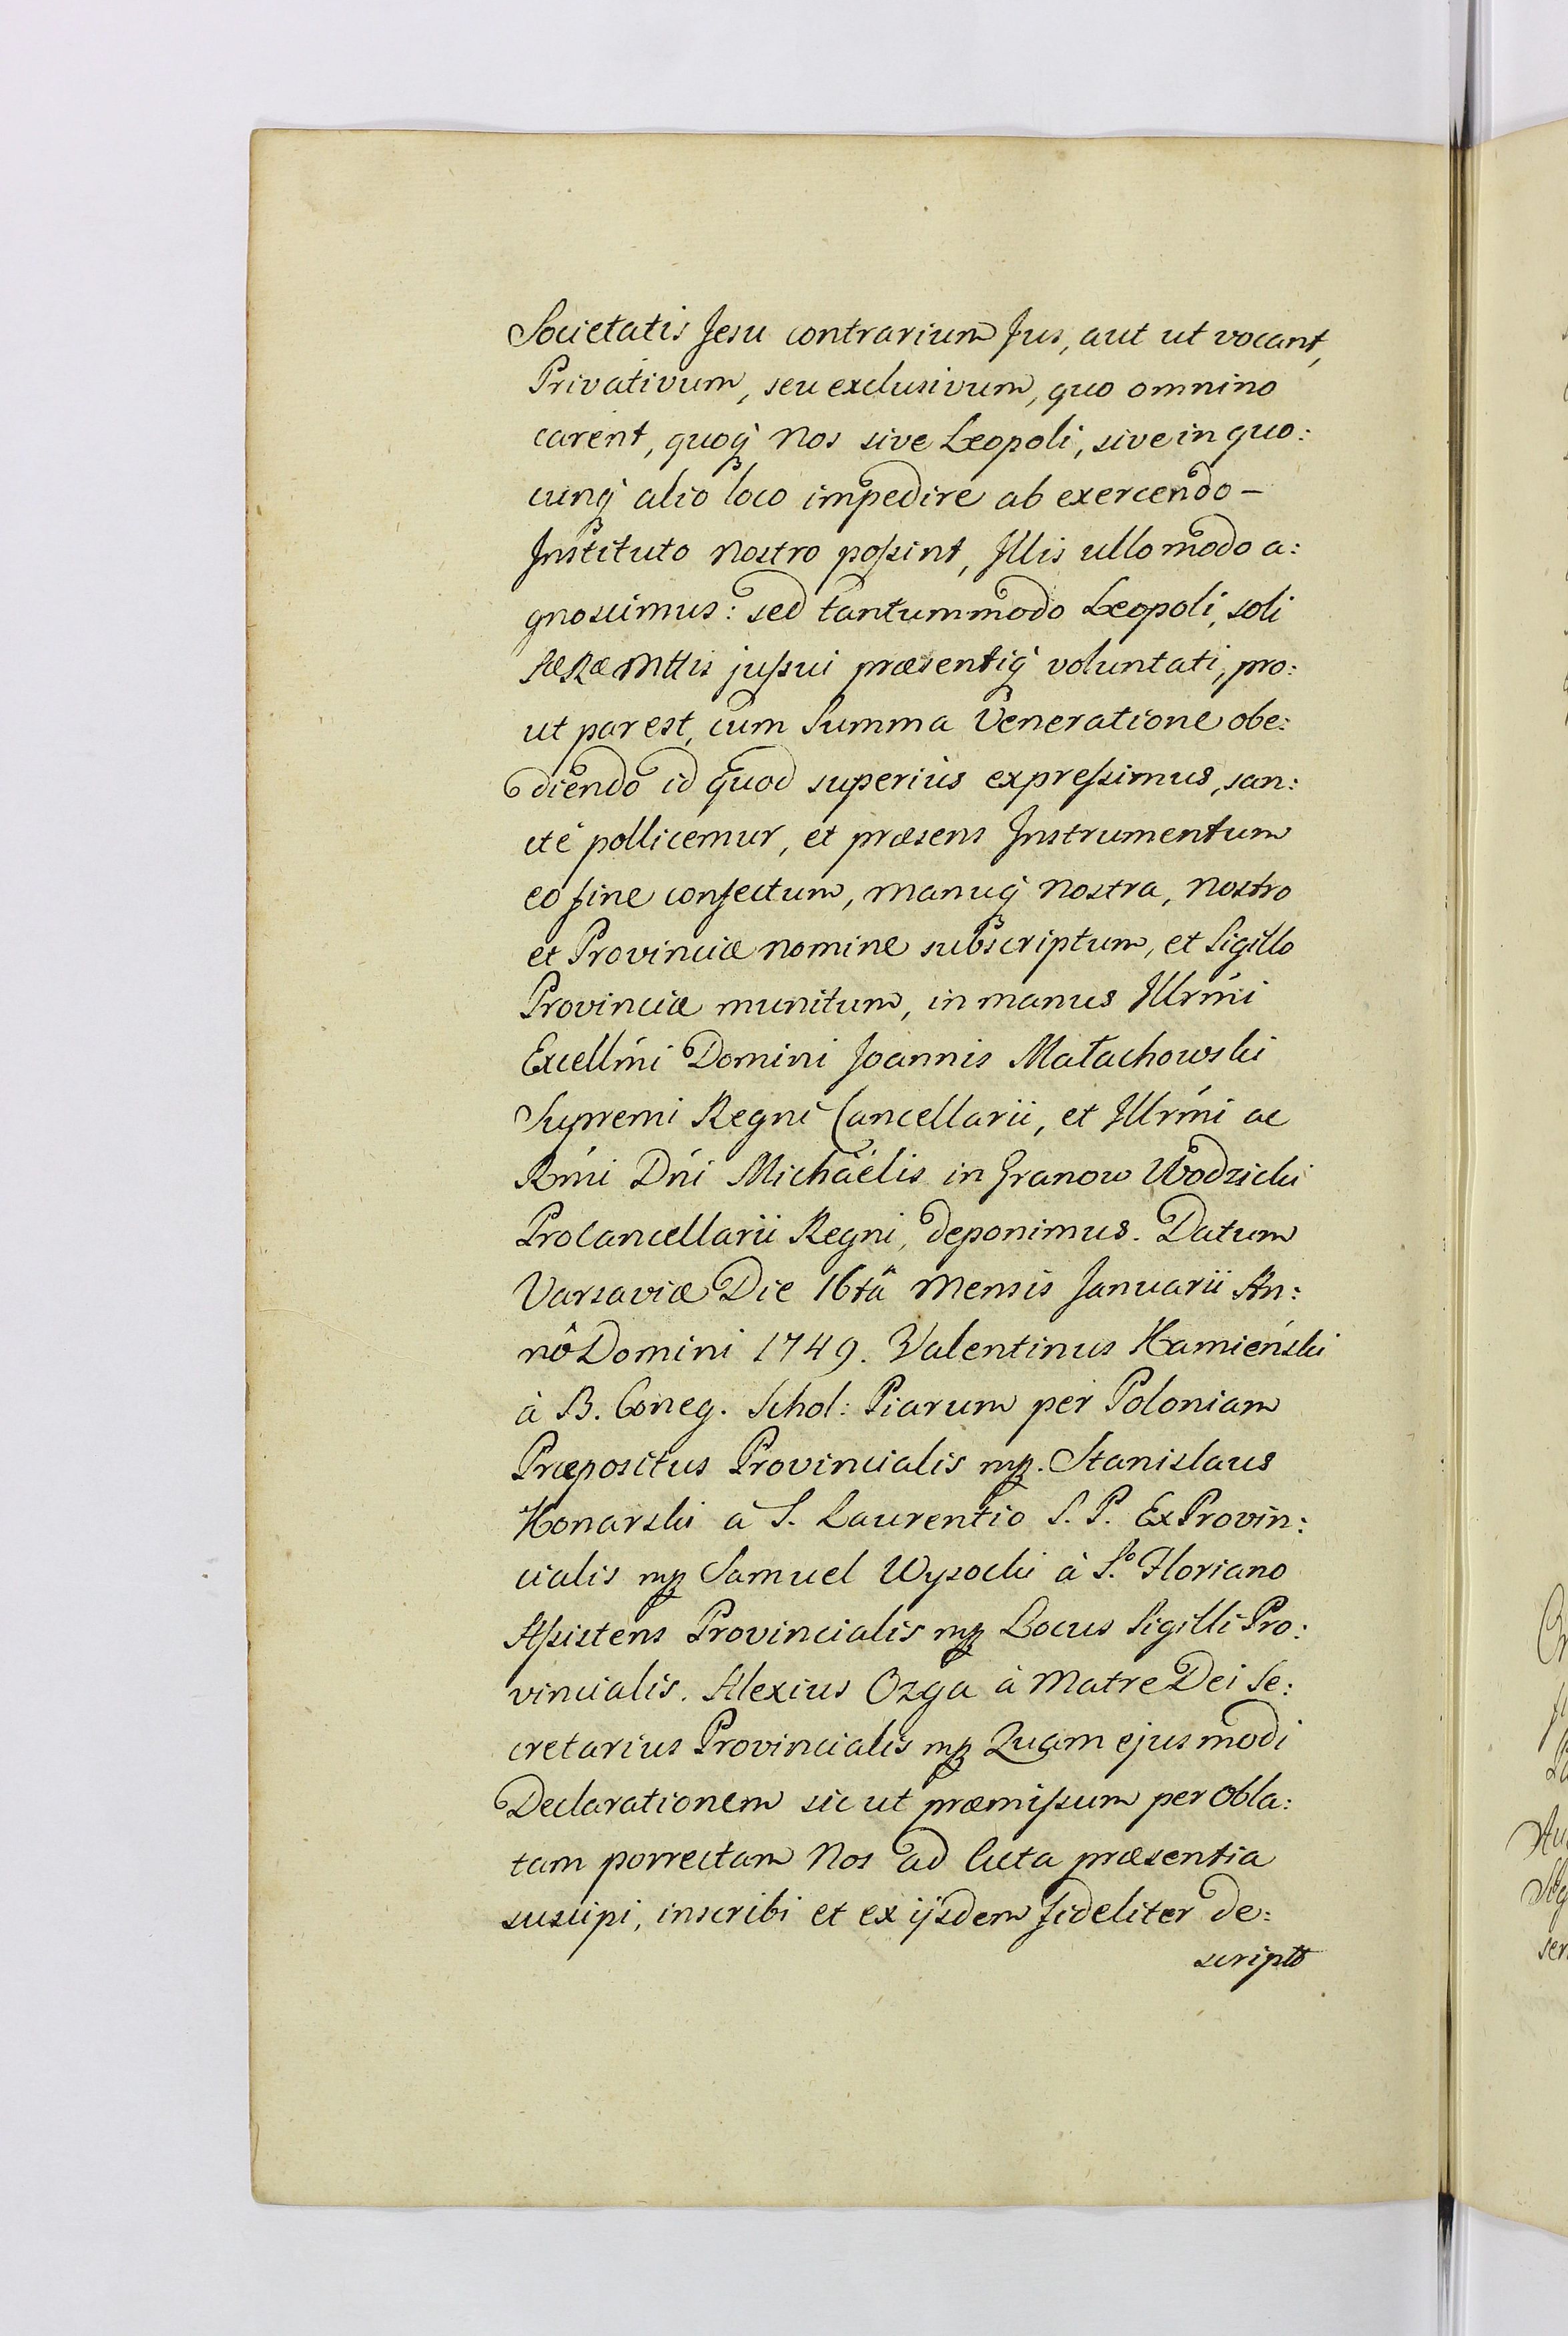 Societatis Jesu contrarium Jus, aut ut vocant,
Privativum, seu exclusivum, quo omnino
carent, quoq3 Nos sive Leopoli, sive in quo:
cunq3 alio loco impedire ab exercendo –
Instituto nostro poſsint, Illis ullo modo a:
gnoscimus: sed tantummodo Leopoli, soli
SæRæMttis juſsui præsentiq3 voluntati, pro:
ut par est, cum Summa Veneratione obe:
diendo id quod superiùs expreſsimus, san:
ctè pollicemur, et præsens Instrumentum
eo fine confectum, manuq3 nostra, nostro
et Provinciæ nomine subscriptum, et Sigillo
Provinciæ munitum, in manus Illrmi
Excellmi Domini Joannis Małachowski
Supremi Regni Cancellarii, et Illrmi ac
Rmi Dni Michaëlis in Granow Wodzicki
Procancellarii Regni, deponimus. Datum
Varsaviæ Die 16tâ Mensis Januarii An:
nô Domini 1749. Valentinus Kamieński
à B. Coneg. Schol: Piarum per Poloniam
Præpositus Provincialis mp. Stanislaus
Konarski à S. Laurentio S. P. ExProvin:
cialis mp Samuel Wysocki à S.º Floriano
Aſsistens Provincialis mp Locus Sigilli Pro:
vincialis. Alexius Ozga à Matre Dei Se:
cretarius Provincialis mp Quam ejusmodi
Declarationem sic ut præmiſsum per Obla:
tam porrectam Nos ad Acta præsentia
suscipi, inscribi et ex ijsdem fideliter de:
scripto